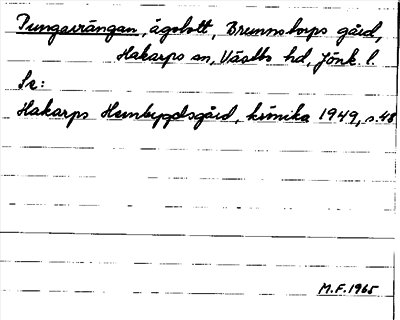 Pungavrängan, ägolott, Brunnstorps gård,
Hakarps sn, Västbo hd, Jönk. l.
Se:
Hakarps Hembygdsgård, krönika 1949, s. 48
M.F. 1965